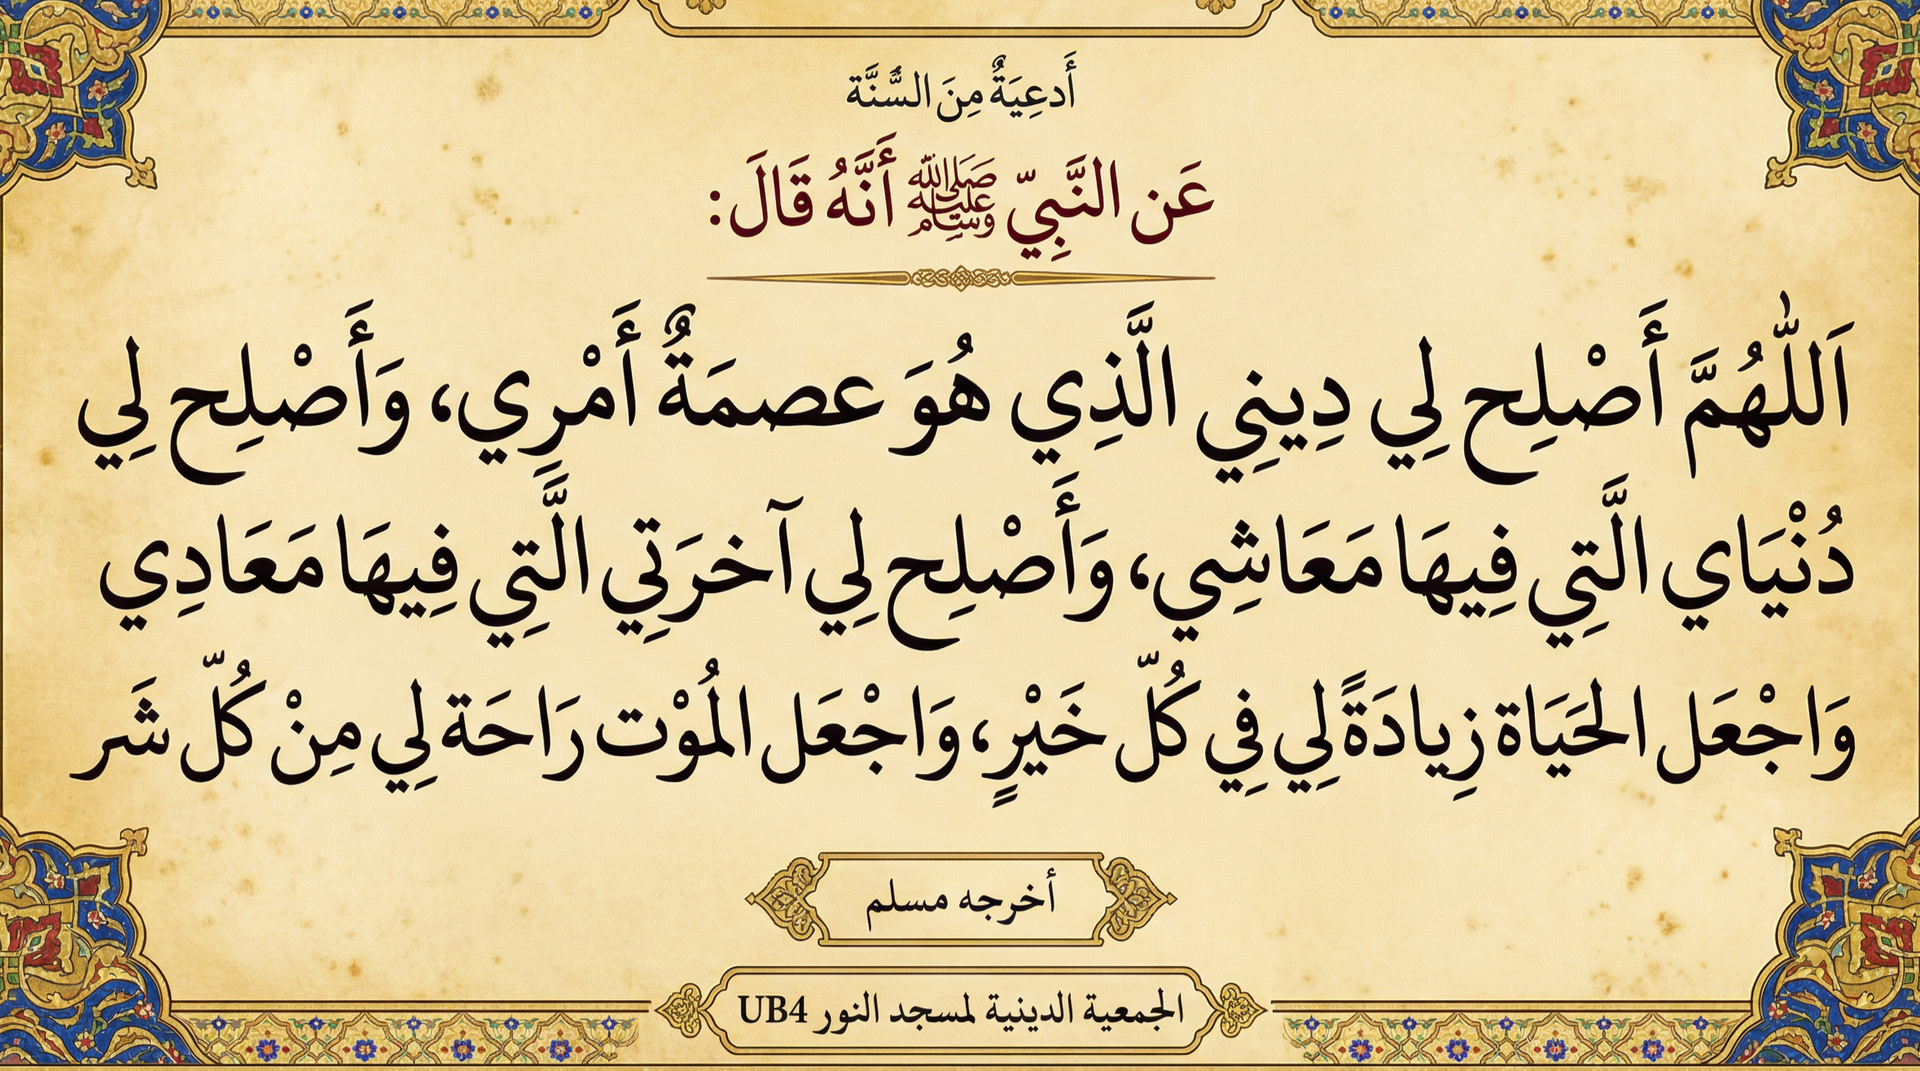 أَدعِيَةٌ مِنَ السُّنَّة
عَن النَّبِيّ ﷺ أَنَّهُ قَالَ:
اَللّٰهُمَّ أَصْلِح لِي دِينِي الَّذِي هُوَ عصمَةٌ أَمْرِي، وَأَصْلِح لِي
دُنْيَاي الَّتِي فِيهَا مَعَاشِي، وَأَصْلِح لِي آخرَتِي الَّتِي فِيهَا مَعَادِي
وَاجْعَل الحَيَاة زِيادَةً لِي فِي كُلّ خَيْرٍ، وَاجْعَل المُوْت رَاحَة لِي مِنْ كُلّ شَر
أخرجه مسلم
الجمعية الدينية لمسجد النور UB4